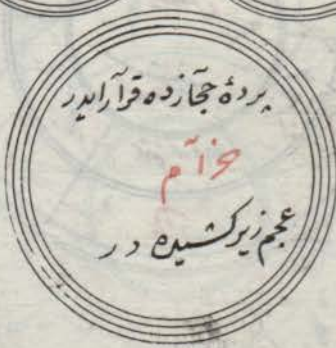 پردهٔ حجازده قرآر ایدر
عجم زیر کشیده در